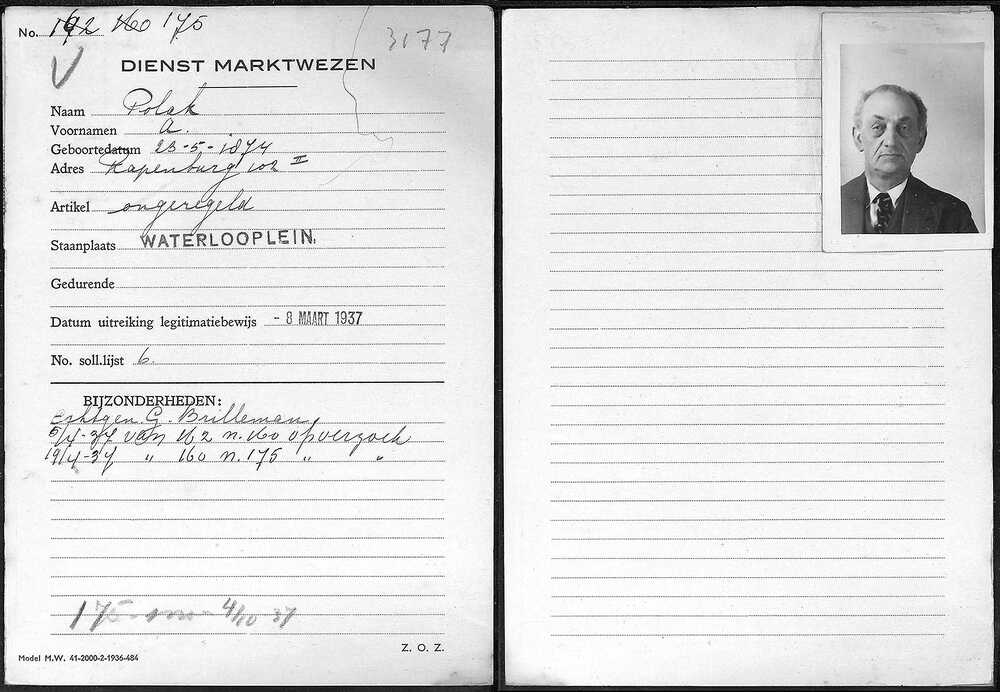 No. 162 160 175
3177
V
DIENST MARKTWEZEN
Naam Polak
Voornamen A.
Geboortedatum 23-5-1874
Adres Rapenburg 102 II
Artikel ongeregeld
Staanplaats WATERLOOPLEIN.
Gedurende
Datum uitreiking legitimatiebewijs - 8 MAART 1937
No. soll.lijst 6.
BIJZONDERHEDEN:
Echtgen. G. Brilleman,
5/4-37 van 162 n. 160 op verzoek
19/4-37 " 160 n. 175 " "
175 4/10 37
Z. O. Z.
Model M.W. 41-2000-2-1936-484